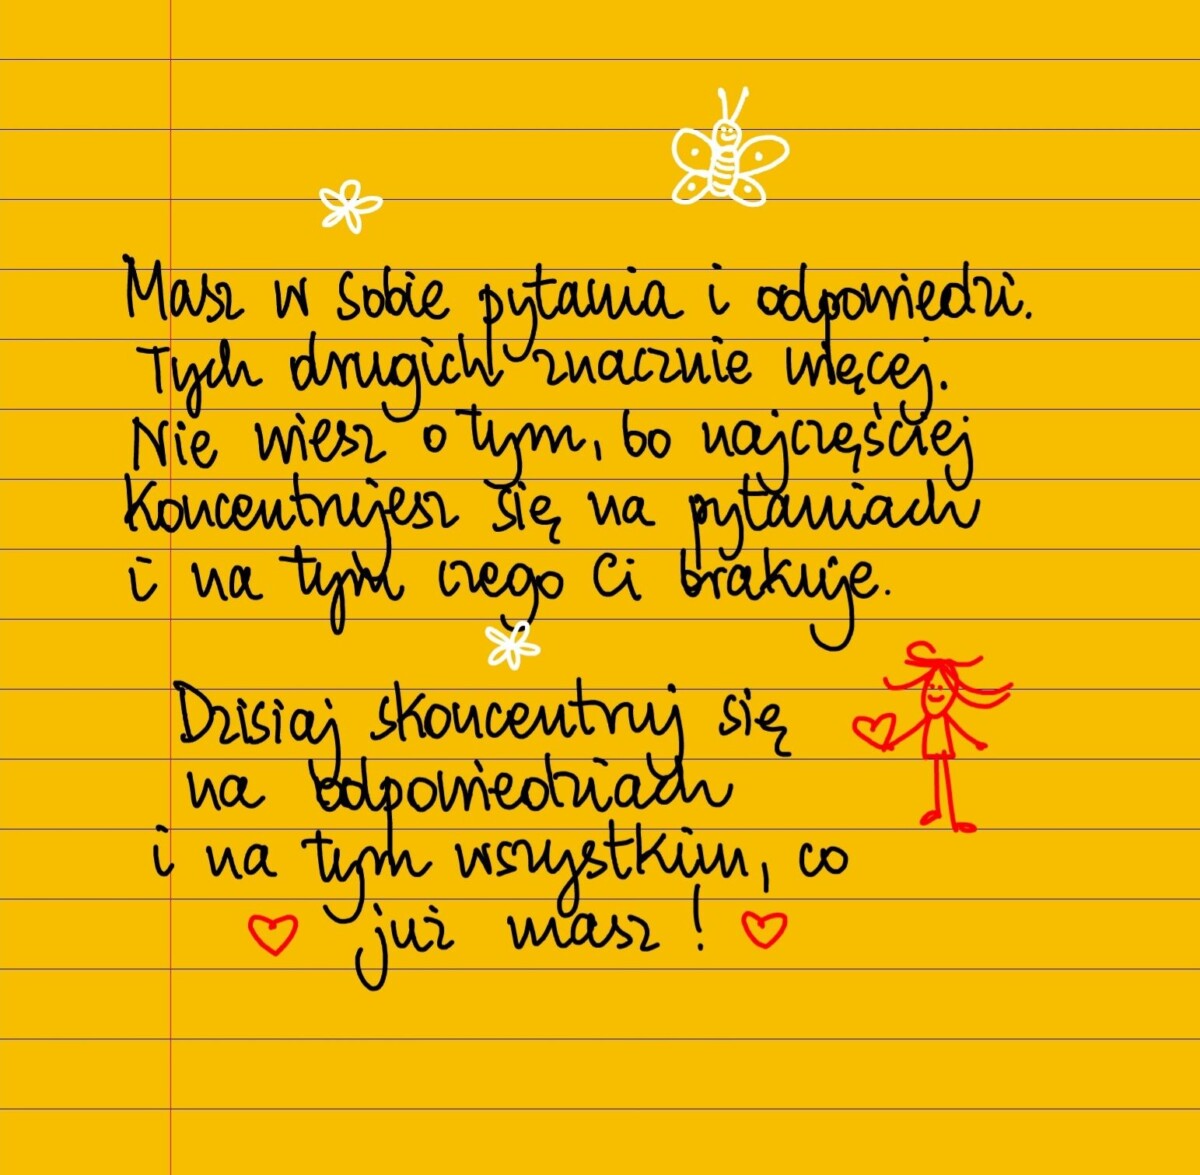 Masz w sobie pytania i odpowiedzi.
Tych drugich znacznie więcej.
Nie wiesz o tym, bo najczęściej
koncentrujesz się na pytaniach
i na tym czego Ci brakuje.
Dzisiaj skoncentruj się
na odpowiedziach
i na tym wszystkim, co
już masz!